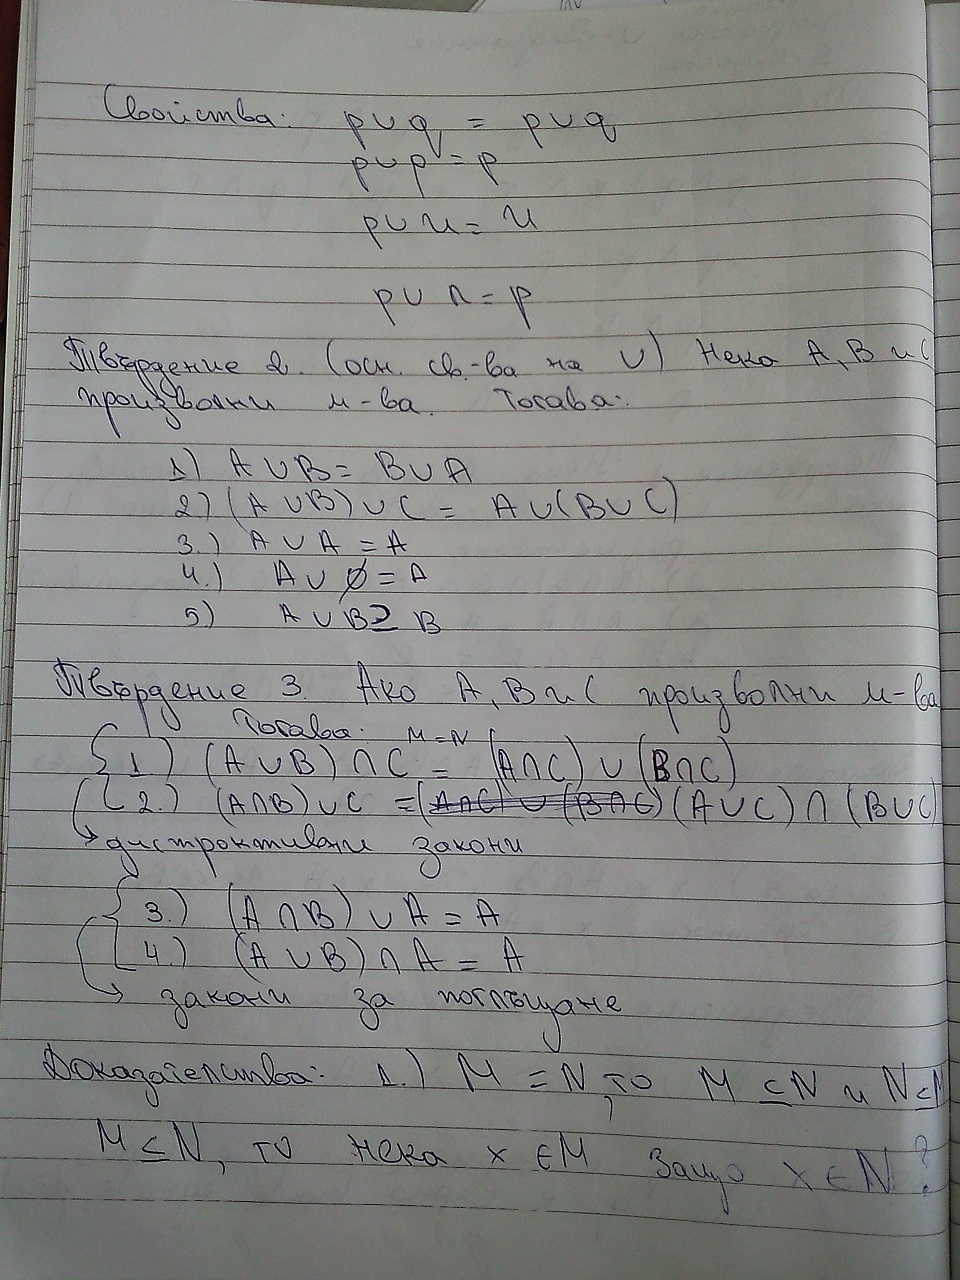 Свойства: p∪q = p∪q
p∪p = p
p∪u = u
p∪л = p
Твърдение 2. (осн. св-ва на ∪) Нека A, B и C
произволни м-ва. Тогава:
1) A∪B = B∪A
2) (A∪B)∪C = A∪(B∪C)
3.) A∪A = A
4.) A∪∅ = A
5) A∪B ⊇ B
Твърдение 3. Ако A, B и C произволни м-ва
Тогава: M=N
1.) (A∪B)∩C = (A∩C)∪(B∩C)
2.) (A∩B)∪C = (A∩C)∪(B∩C) (A∪C)∩(B∪C)
дистроктивни закони
3.) (A∩B)∪A = A
4.) (A∪B)∩A = A
закони за поглъщане
Доказателства: 1.) M = N, то M ⊆ N и N ⊆ M
M ⊆ N, то нека x ∈ M Защо x ∈ N?